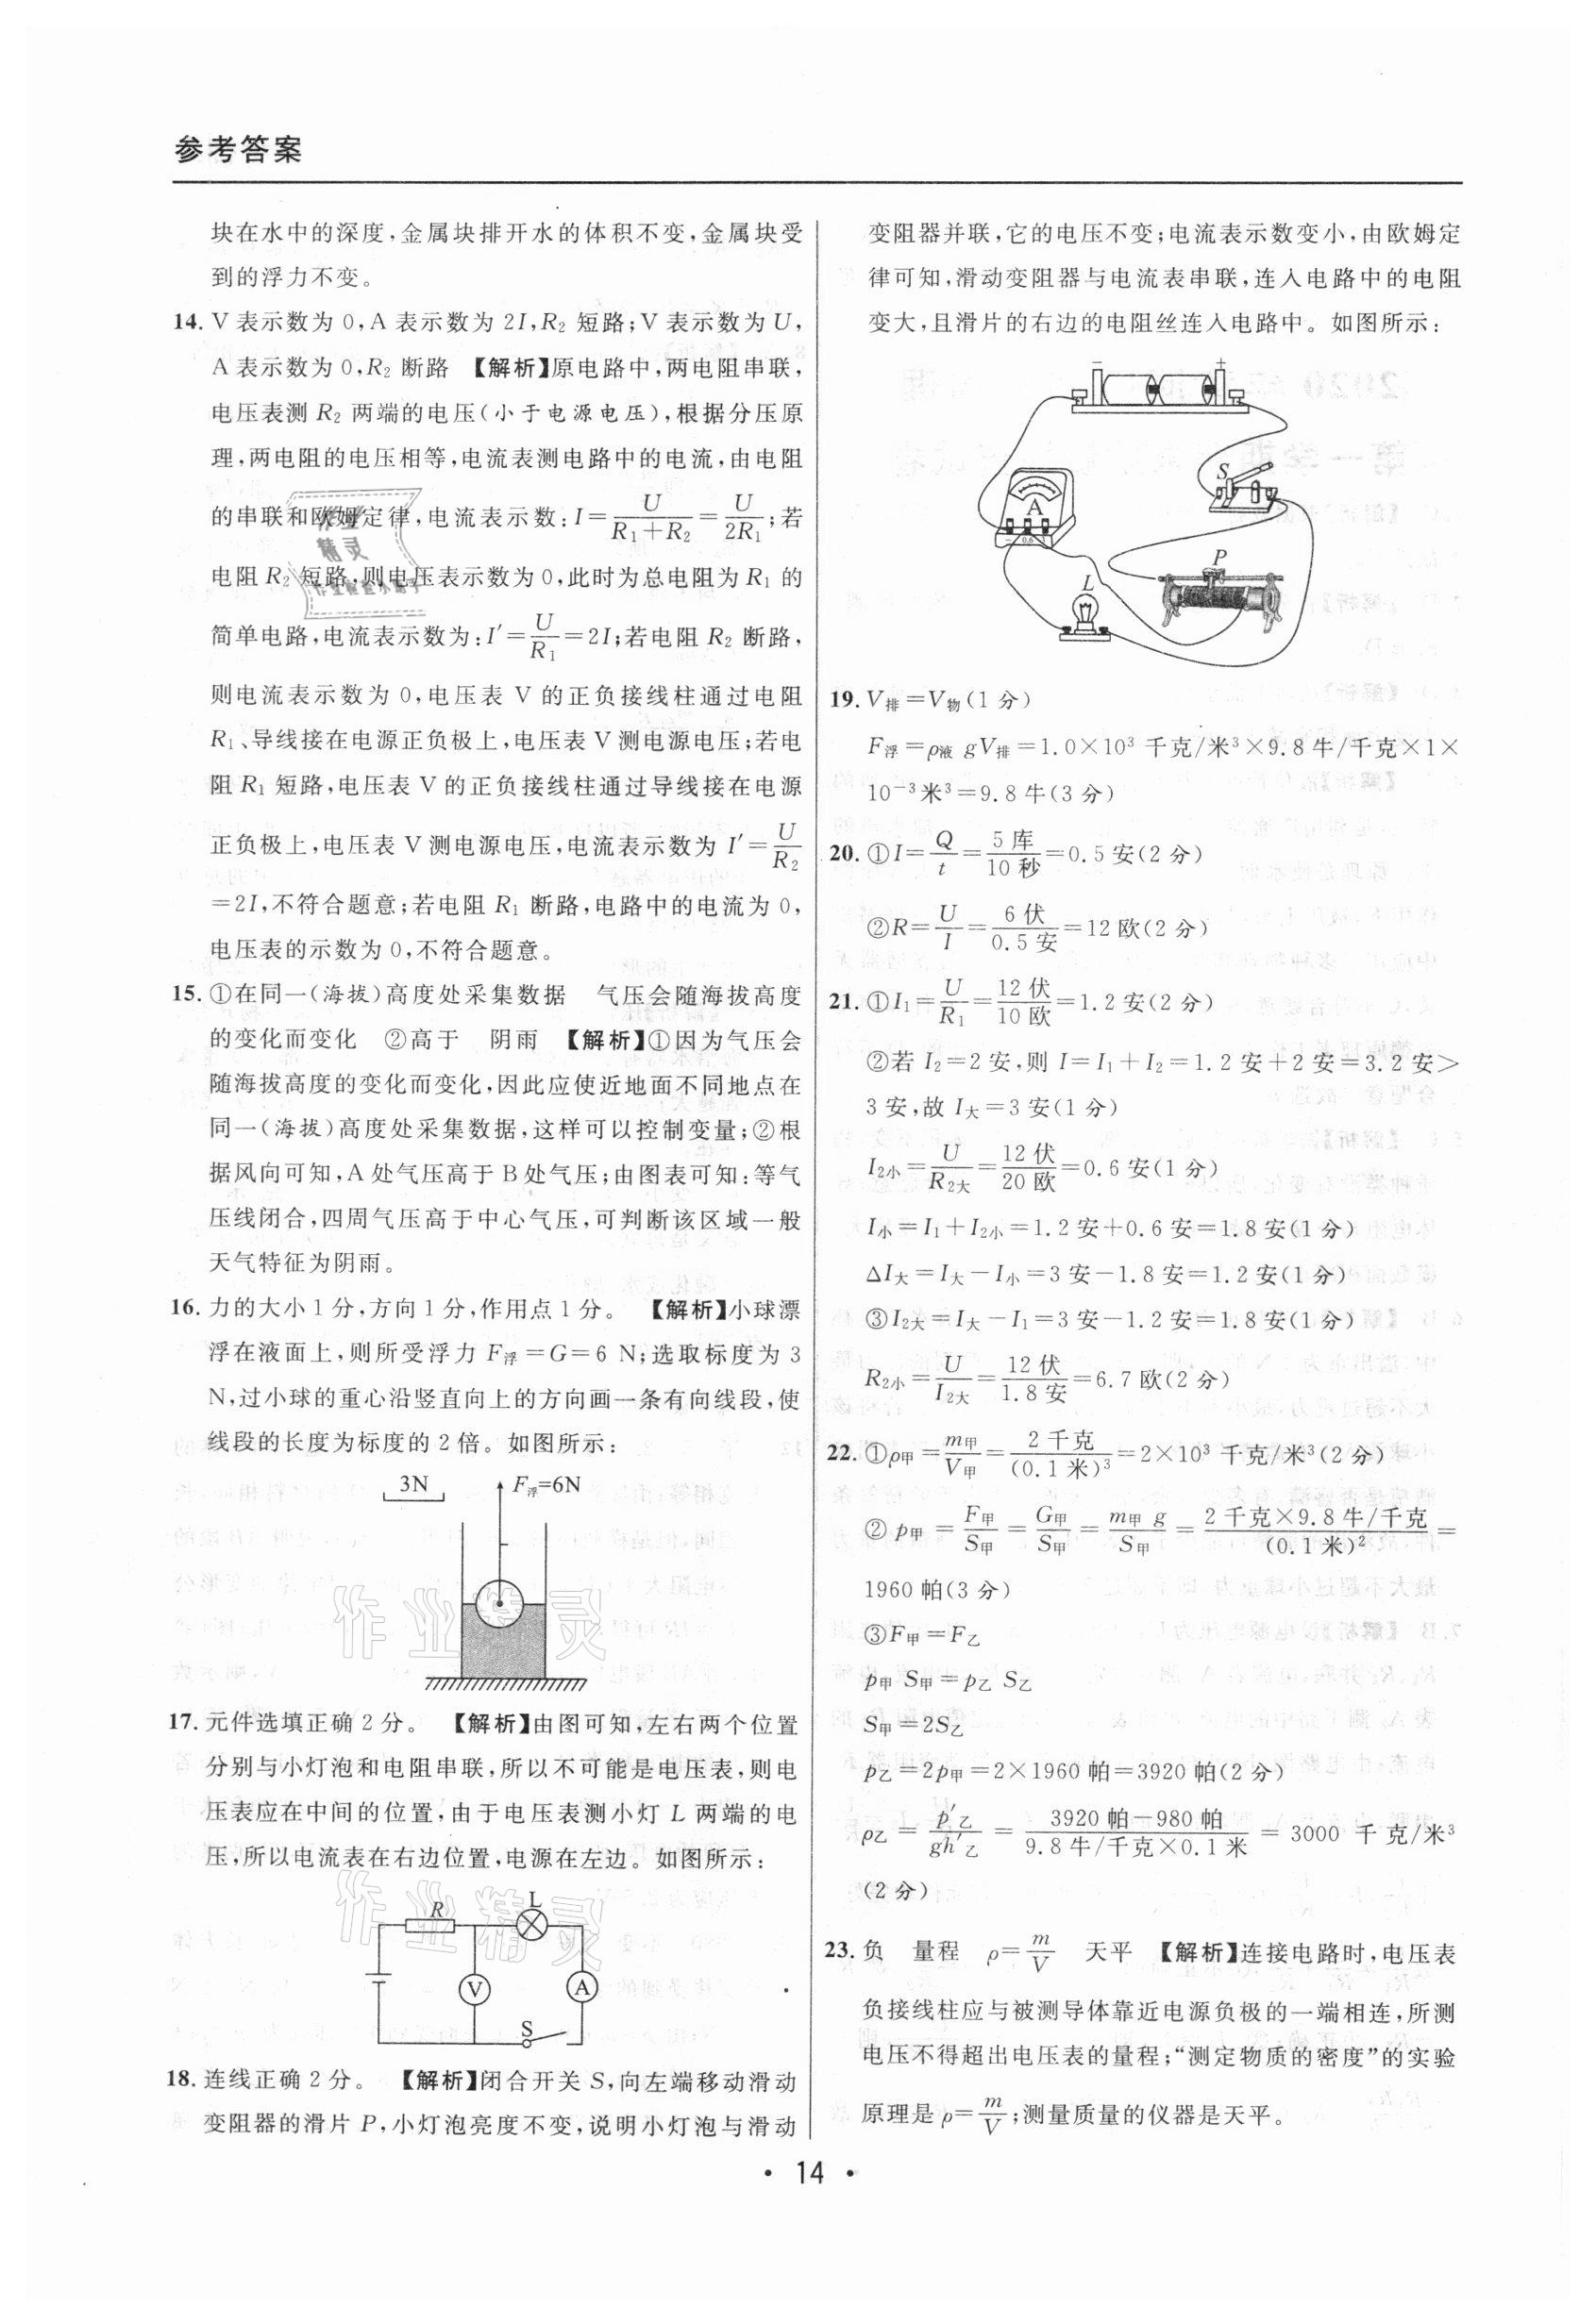 参考答案
块在水中的深度,金属块排开水的体积不变,金属块受
到的浮力不变。
14. V 表示数为 0,A 表示数为 2I,R₂ 短路;V 表示数为 U,
A 表示数为 0,R₂ 断路 【解析】原电路中,两电阻串联,
电压表测 R₂ 两端的电压(小于电源电压),根据分压原
理,两电阻的电压相等,电流表测电路中的电流,由电阻
的串联和欧姆定律,电流表示数:I=U/(R₁+R₂)=U/2R₁;若
电阻 R₂ 短路,则电压表示数为 0,此时为总电阻为 R₁ 的
简单电路,电流表示数为:I′=U/R₁=2I;若电阻 R₂ 断路,
则电流表示数为 0,电压表 V 的正负接线柱通过电阻
R₁、导线接在电源正负极上,电压表 V 测电源电压;若电
阻 R₁ 短路,电压表 V 的正负接线柱通过导线接在电源
正负极上,电压表 V 测电源电压,电流表示数为 I′=U/R₂
=2I,不符合题意;若电阻 R₁ 断路,电路中的电流为 0,
电压表的示数为 0,不符合题意。
15. ①在同一(海拔)高度处采集数据 气压会随海拔高度
的变化而变化 ②高于 阴雨 【解析】①因为气压会
随海拔高度的变化而变化,因此应使近地面不同地点在
同一(海拔)高度处采集数据,这样可以控制变量;②根
据风向可知,A 处气压高于 B 处气压;由图表可知:等气
压线闭合,四周气压高于中心气压,可判断该区域一般
天气特征为阴雨。
16. 力的大小 1 分,方向 1 分,作用点 1 分。 【解析】小球漂
浮在液面上,则所受浮力 F浮=G=6 N;选取标度为 3
N,过小球的重心沿竖直向上的方向画一条有向线段,使
线段的长度为标度的 2 倍。如图所示:
3N F浮=6N
17. 元件选填正确 2 分。 【解析】由图可知,左右两个位置
分别与小灯泡和电阻串联,所以不可能是电压表,则电
压表应在中间的位置,由于电压表测小灯 L 两端的电
压,所以电流表在右边位置,电源在左边。如图所示:
R L
V A
S
18. 连线正确 2 分。 【解析】闭合开关 S,向左端移动滑动
变阻器的滑片 P,小灯泡亮度不变,说明小灯泡与滑动
变阻器并联,它的电压不变;电流表示数变小,由欧姆定
律可知,滑动变阻器与电流表串联,连入电路中的电阻
变大,且滑片的右边的电阻丝连入电路中。如图所示:
− +
S
A
− 0.6 3
P
L
19. V排=V物(1 分)
F浮=ρ液 gV排=1.0×10³ 千克/米³×9.8 牛/千克×1×
10⁻³米³=9.8 牛(3 分)
20. ①I=Q/t=5 库/10 秒=0.5 安(2 分)
②R=U/I=6 伏/0.5 安=12 欧(2 分)
21. ①I₁=U/R₁=12 伏/10 欧=1.2 安(2 分)
②若 I₂=2 安,则 I=I₁+I₂=1.2 安+2 安=3.2 安>
3 安,故 I大=3 安(1 分)
I₂小=U/R₂大=12 伏/20 欧=0.6 安(1 分)
I小=I₁+I₂小=1.2 安+0.6 安=1.8 安(1 分)
ΔI大=I大−I小=3 安−1.8 安=1.2 安(1 分)
③I₂大=I大−I₁=3 安−1.2 安=1.8 安(1 分)
R₂小=U/I₂大=12 伏/1.8 安=6.7 欧(2 分)
22. ①ρ甲=m甲/V甲=2 千克/(0.1 米)³=2×10³ 千克/米³(2 分)
② p甲=F甲/S甲=G甲/S甲=m甲 g/S甲=2 千克×9.8 牛/千克/(0.1 米)²=
1960 帕(3 分)
③F甲=F乙
p甲 S甲=p乙 S乙
S甲=2S乙
p乙=2p甲=2×1960 帕=3920 帕(2 分)
ρ乙=p′乙/gh′乙=3920 帕−980 帕/9.8 牛/千克×0.1 米=3000 千克/米³
(2 分)
23. 负 量程 ρ=m/V 天平 【解析】连接电路时,电压表
负接线柱应与被测导体靠近电源负极的一端相连,所测
电压不得超出电压表的量程;“测定物质的密度”的实验
原理是 ρ=m/V;测量质量的仪器是天平。
• 14 •
作业精灵
作业精灵